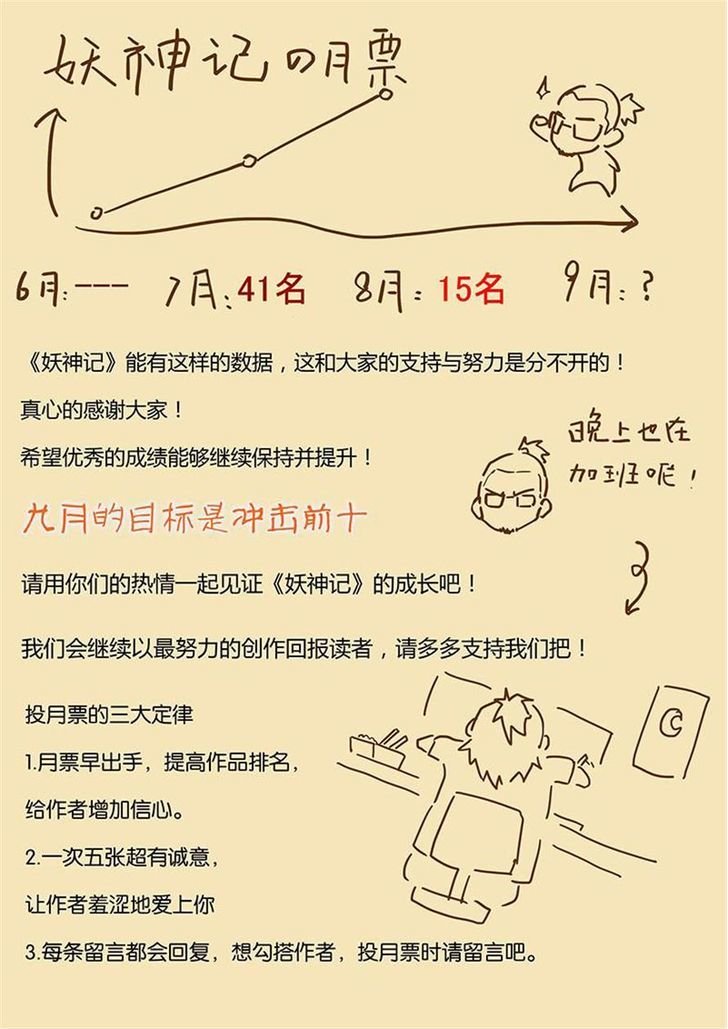 妖神记の月票
6月：--- 7月：41名 8月：15名 9月：？
《妖神记》能有这样的数据，这和大家的支持与努力是分不开的！
真心的感谢大家！
希望优秀的成绩能够继续保持并提升！
晚上也在
加班呢！
九月的目标是冲击前十
请用你们的热情一起见证《妖神记》的成长吧！
我们会继续以最努力的创作回报读者，请多多支持我们把！
投月票的三大定律
1.月票早出手，提高作品排名，
给作者增加信心。
2.一次五张超有诚意，
让作者羞涩地爱上你
3.每条留言都会回复，想勾搭作者，投月票时请留言吧。